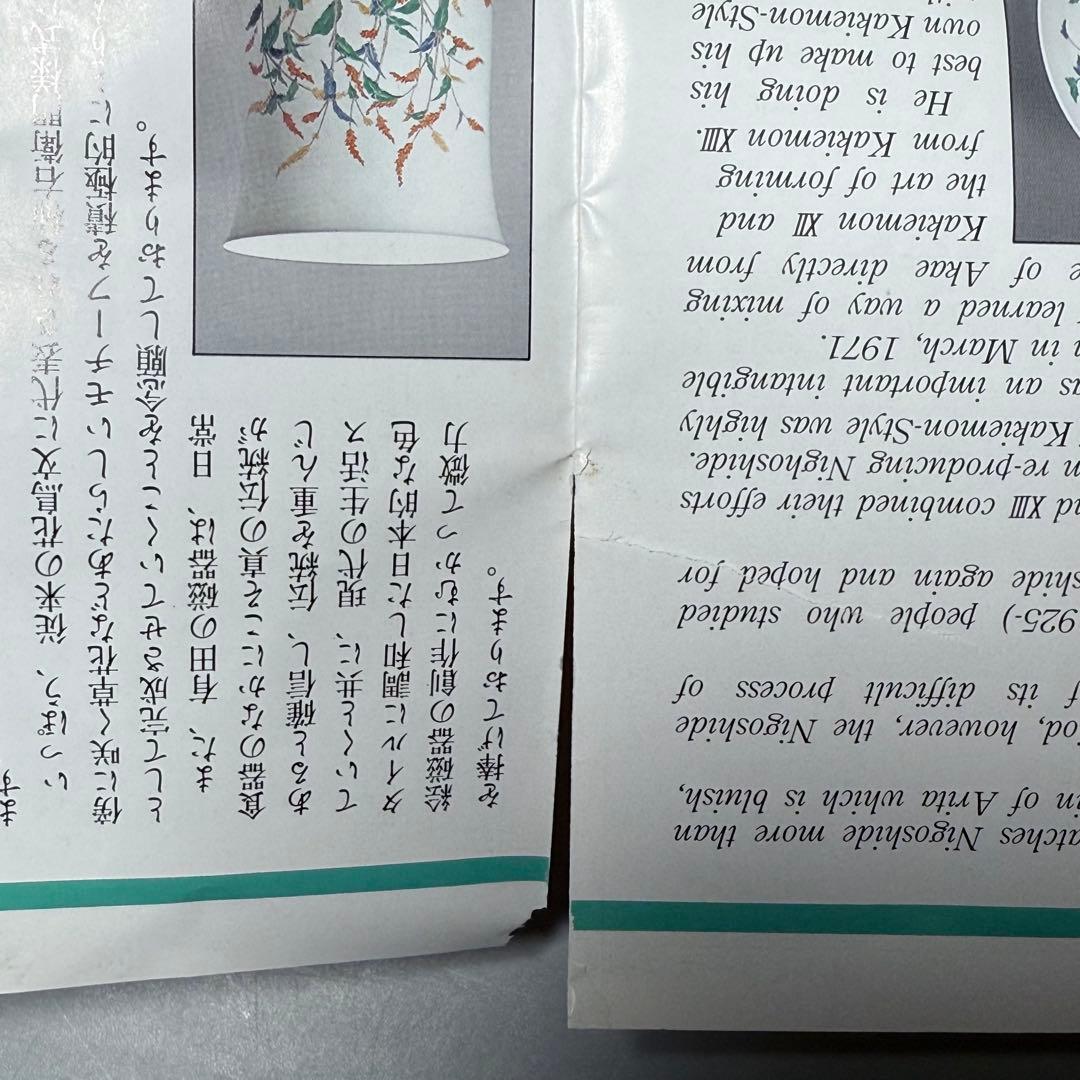 more than
of Arita which is bluish,
however, the Nigoshide
its difficult process of
925-) people who studied
again and hoped for
XIII combined their efforts
re-producing Nighoshide.
Kakiemon-Style was highly
as an important intangible
in March, 1971.
learned a way of mixing
of Akae directly from
Kakiemon XII and
the art of forming
from Kakiemon XIII.
He is doing his
best to make up his
own Kakiemon-Style
ます
いっぽう、従来の花鳥文に代表される柿右衛門様式
傍に咲く草花などとあたらしいモチーフを積極的に
として完成させていくことを念願しております。
また、有田の磁器は、日常
食器のなかにこそ真の伝統が
あると確信し、伝統を重んじ
ていくと共に、現代の生活ス
タイルに調和した日本的な色
絵磁器の創作にむかって微力
を捧げております。